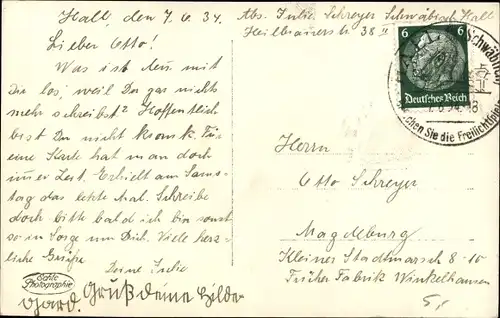 Hall, den 7.6.34.
Lieber Otto!
Was ist denn mit
Dir los, weil Du gar nichts
mehr schreibst? Hoffentlich
bist Du nicht krank. Für
eine Karte hat man doch
immer Zeit. Erhielt am Sams-
tag das letzte Mal. Schreibe
doch bitte bald ich bin sonst
so in Sorge um Dich. Viele herz-
liche Grüße
Deine Julie
Gruß deine Hilde
Echte
Photographie
Abs. Julie Schreyer Schwäbisch Hall
Heilbronnerstr. 38 II
6 6
Deutsches Reich
Schwäbisch
Herrn
Otto Schreyer
Magdeburg
Kleiner Stadtmarsch 8-10
Früher Fabrik Winkelhausen